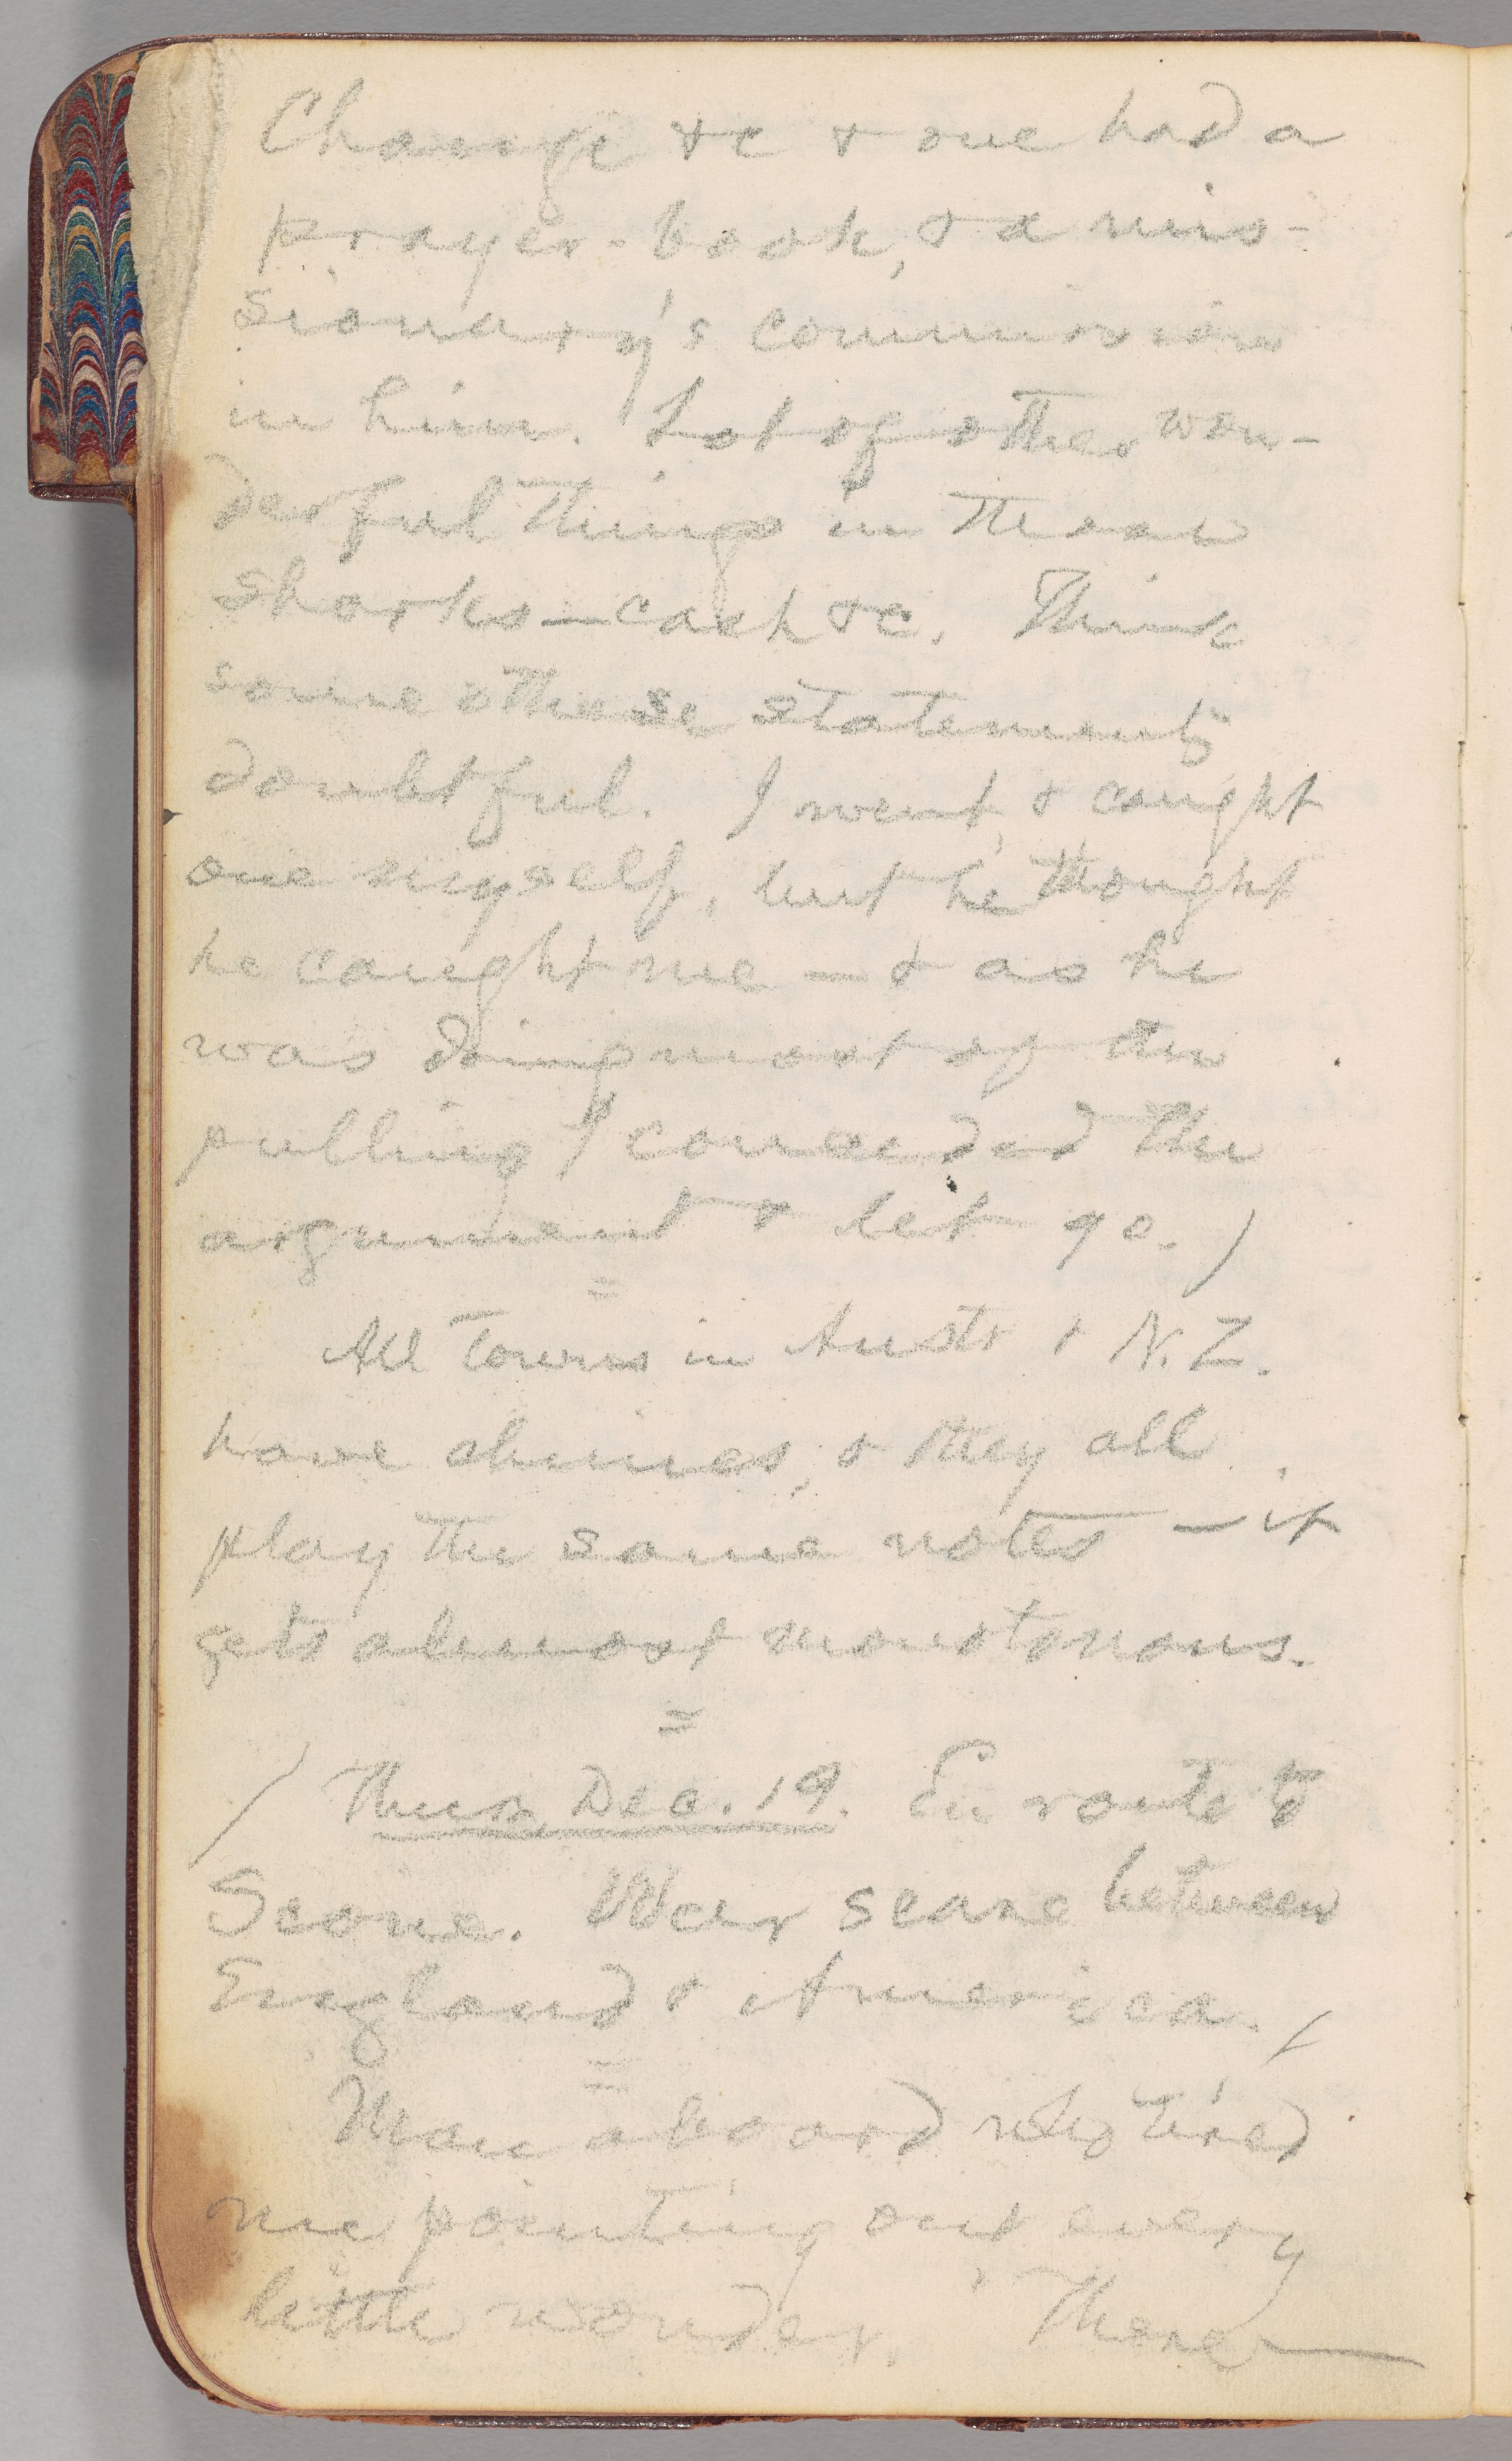 Change &c & one had a
prayer-book, & a mis-
sionary's commission
in him. Lot of other won-
derful things in those
sharks—cash &c. Think
some o these statements
doubtful. I went & caught
one myself, but he thought
he caught me — & as he
was doing most of the
pulling I conceded the
argument & let go. )
=
All towns in Austr & N. Z.
have chimes, & they all
play the same notes — it
gets almost monotonous.
=
/ Thurs, Dec. 19. En route to
Scone. War scare between
England & America. /
=
Man aboard who tired
me pointing out every
little wonder. There—